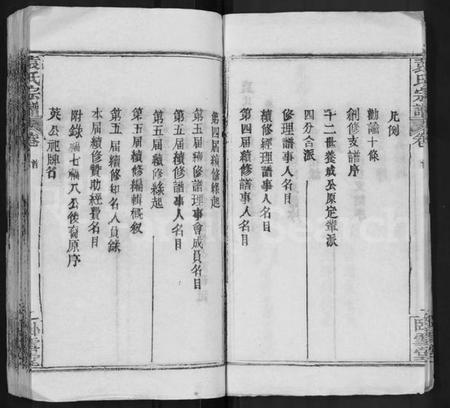 凡例
勸諭十條
創修支譜序
十二世養威公原定輩派
四分合派
修理譜事人名目
續修經理譜事人名目
第四屆續修譜事人名目
第四屆續修緣起
第五屆續修譜理事會成員名目
第五屆續修譜事人名目
第五屆續修緣起
第五屆續修編輯概叙
第五屆續修知名人員錄
本屆續修贊助經費名目
附錄福七福八公後裔原序
英公祀
袁氏宗譜
卷首
臥雪堂